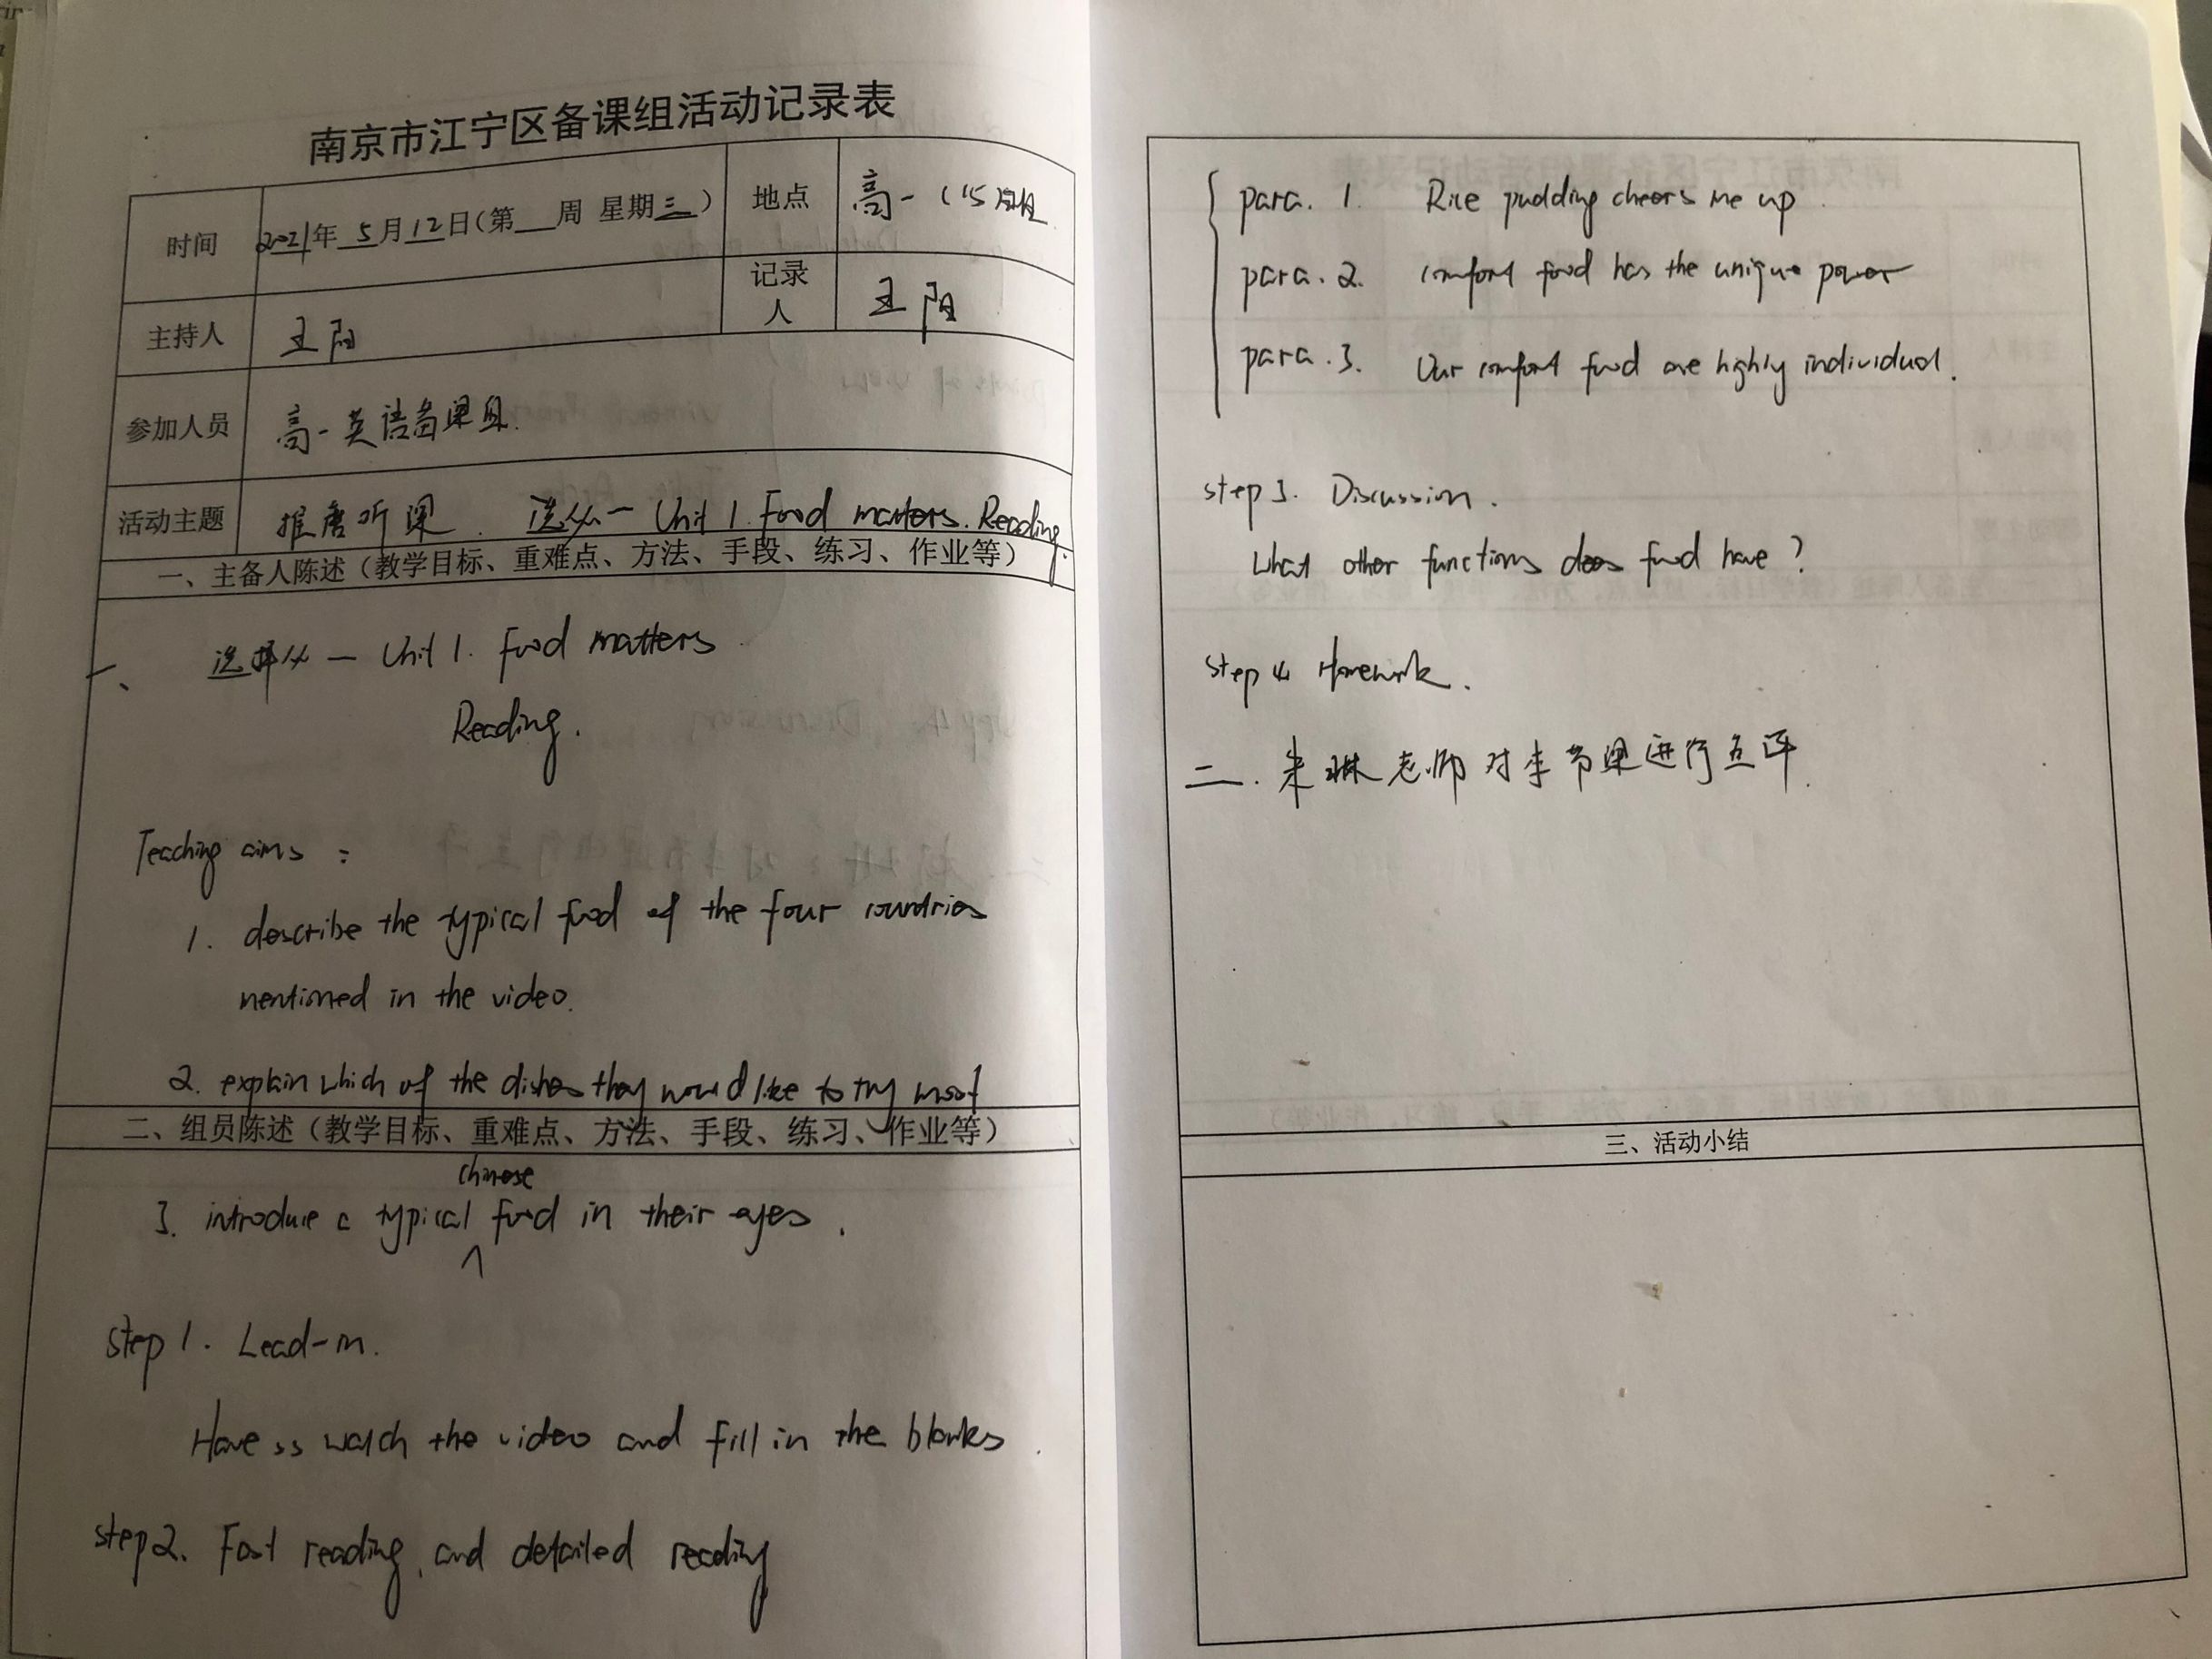 南京市江宁区备课组活动记录表
时间 2021年 5月12日(第__周 星期三) 地点 高一(15)班
主持人 王阳 记录人 王阳
参加人员 高一英语备课组.
活动主题 推磨听课. 选必一 Unit 1. Food matters. Reading.
一、主备人陈述(教学目标、重难点、方法、手段、练习、作业等)
一、 选择必一 Unit 1. Food matters
Reading.
Teaching aims:
1. describe the typical food of the four countries
mentioned in the video.
2. explain which of the dishes they would like to try most
二、组员陈述(教学目标、重难点、方法、手段、练习、作业等)
Chinese
3. introduce a typical ^ food in their eyes.
Step 1. Lead-in.
Have ss watch the video and fill in the blanks.
step 2. Fast reading and detailed reading
para. 1. Rice pudding cheers me up.
para. 2. comfort food has the unique power
para. 3. Our comfort food are highly individual.
step 3. Discussion.
What other functions does food have?
step 4 Homework.
二. 朱琳老师对本节课进行互评.
三、活动小结